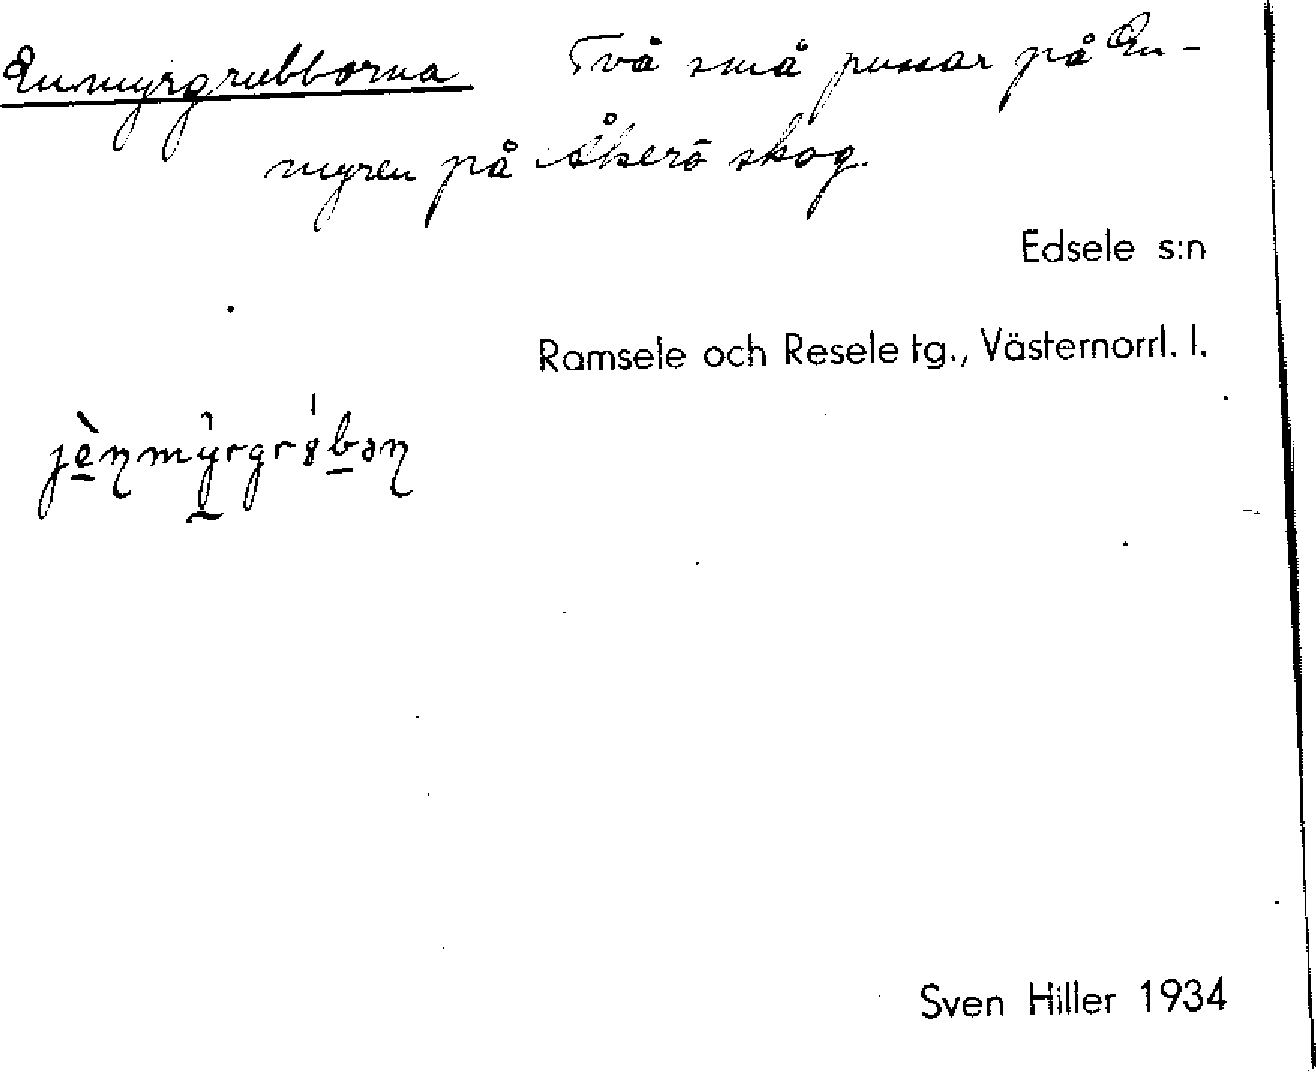 Enmyrgrubborna Två små pussar på En-
myren på Åkerö skog.
Edsele s:n
Ramsele och Resele tg., Västernorrl. l.
Sven Hiller 1934